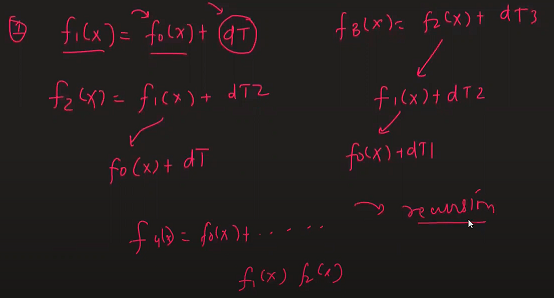 ① f₁(x) = f₀(x) + dT
f₂(x) = f₁(x) + dT2
f₀(x) + dT
f₃(x) = f₂(x) + dT3
f₁(x) + dT2
f₀(x) + dT1
→ recursion
f₄(x) = f₀(x) + ......
f₁(x) f₂(x)